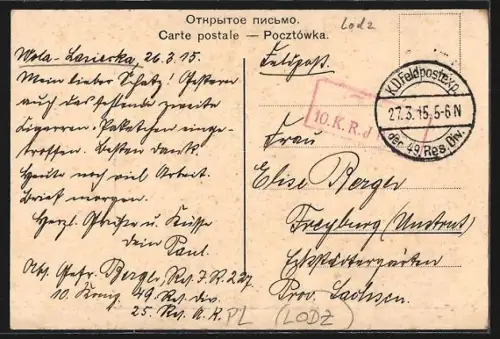 Открытое письмо.
Carte postale — Pocztówka.
Lodz
Wola-Lasiecka, 26.3.15.
Mein lieber Schatz! Gestern
auch das fehlende zweite
Zigarren-Paketchen einge-
troffen. Besten Dank.
Heute noch viel Arbeit.
Brief morgen.
Herzl. Grüsse u. Küsse
Dein Paul.
Abs. Gefr. Berger, Res. J. R. 227
10. Komp. 49. Res. Div.
25. Res. A. K.
Feldpost.
K.D.Feldpostexp.
27.3.15. 5-6 N
der 49. Res. Div.
10. K. R. J
Frau
Elise Berger
Freyburg (Unstrut)
Eckstädtergärten
Prov. Sachsen.
PL (LODZ)